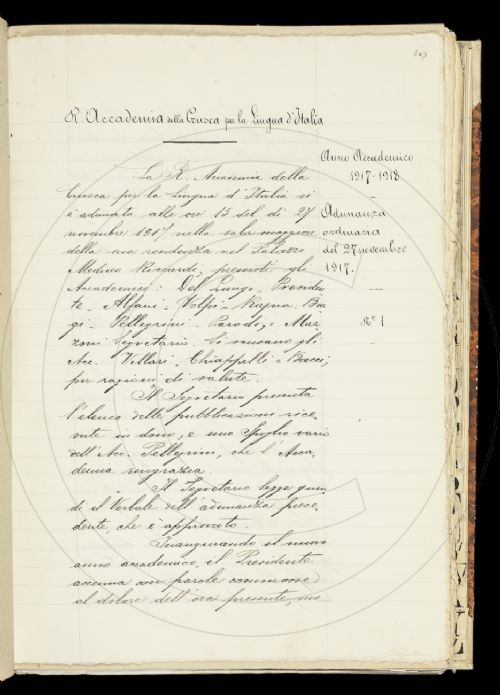 R. Accademia della Crusca per la Lingua d'Italia
Anno Accademico
1917-1918
Adunanza
ordinaria
del 27 novembre
1917.
N.° 1
La R. Accademia della
Crusca per la Lingua d'Italia si
è adunata alle ore 15 del dì 27
novembre 1917 nella sala maggiore
della sua residenza nel Palazzo
Mediceo Riccardi, presenti gli
Accademici: Del Lungo, Presiden-
te - Alfani - Volpi - Rajna - Bia-
gi - Pellegrini - Parodi, e Maz-
zoni Segretario. Si scusano gli
Acc. Villari, Chiappelli e Bacci,
per ragioni di salute.
Il Segretario presenta
l'elenco delle pubblicazioni rice-
vute in dono, e uno Spoglio vario
dell'Acc. Pellegrini, che l'Acca-
demia ringrazia.
Il Segretario legge quin-
di il Verbale dell'adunanza prece-
dente, che è approvato.
Inaugurando il nuovo
anno accademico, il Presidente
accenna con parole commosse
al dolore dell'ora presente, ma